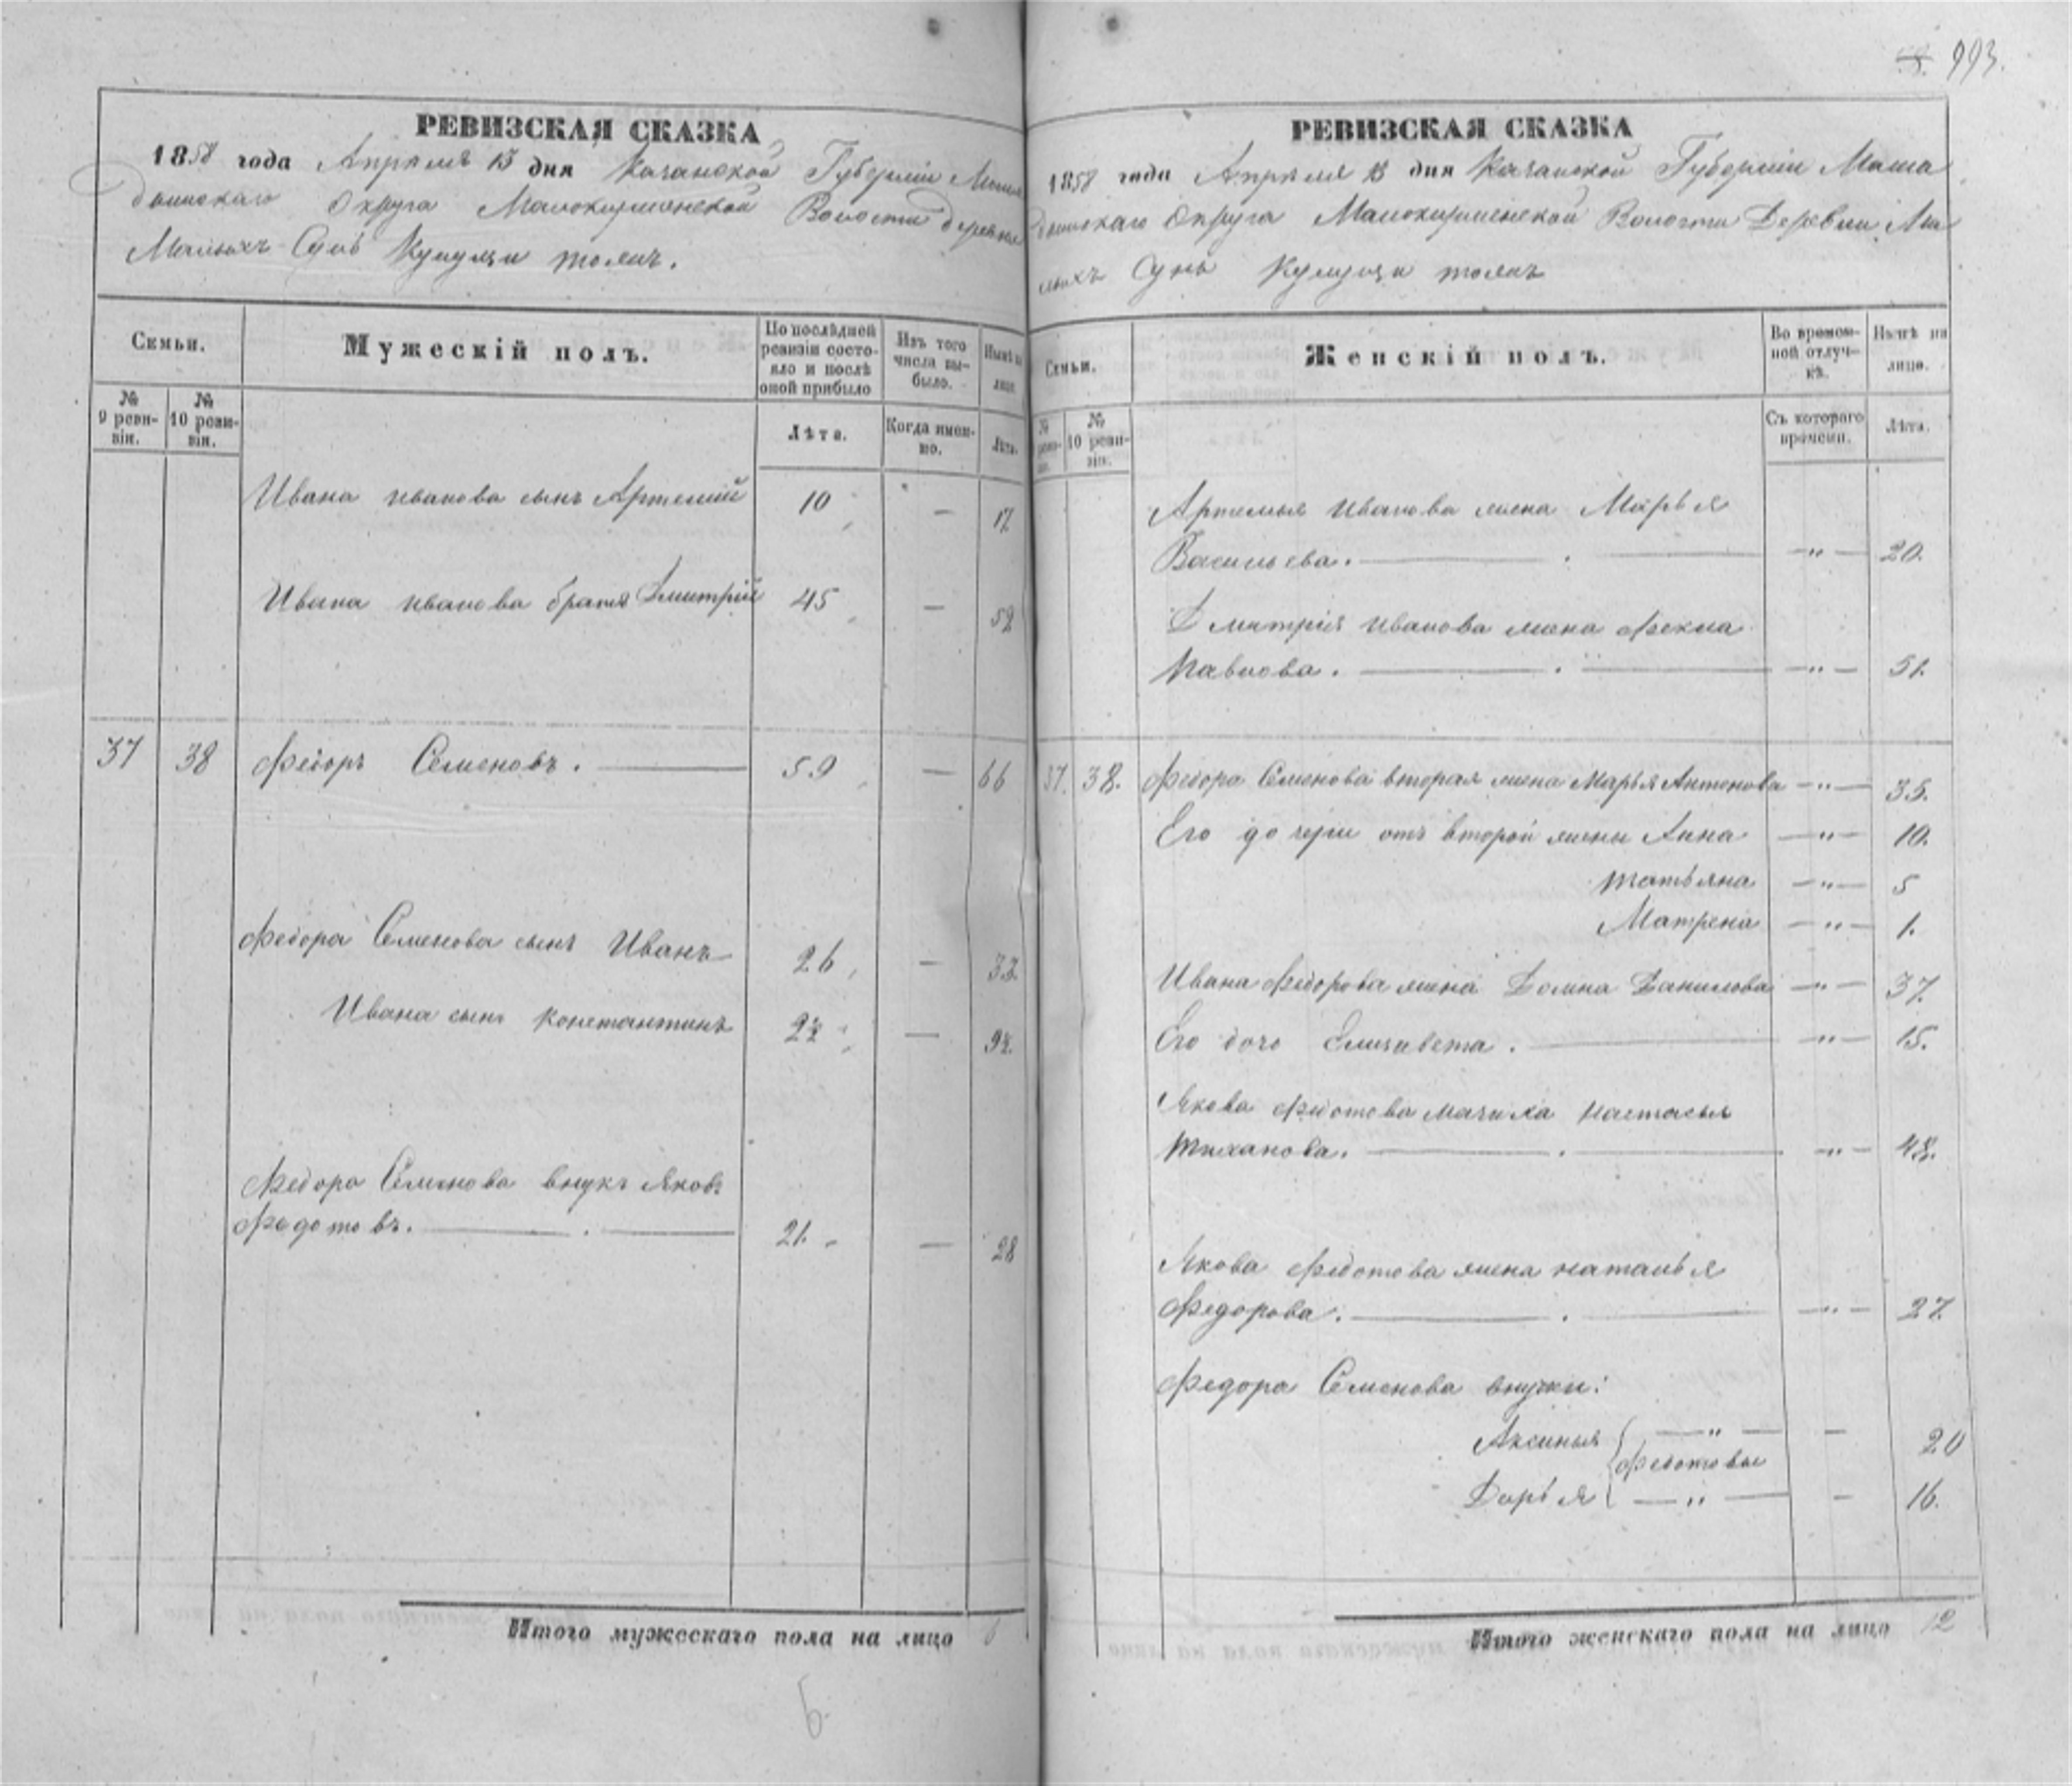 993.
РЕВИЗСКАЯ СКАЗКА
1858 года Апреля 15 дня Казанской Губерніи Мама
дышскаго Округа Малокирменской Волости деревни
Малыхъ Сунь Кумузи тожъ.
Семьи.
Мужескій полъ.
По послѣдней ревизіи состояло и послѣ оной прибыло
Изъ того числа выбыло.
Нынѣ на лице.
№ 9 ревизіи.
№ 10 ревизіи.
Лѣта.
Когда именно.
Лѣта.
Ивана Иванова сынъ Артемій 10 — 17
Ивана Иванова братъ Дмитрій 45 — 52
37 38 Федоръ Семеновъ. — 59 — 66
Федора Семенова сынъ Иванъ 26 — 33.
Ивана сынъ Константинъ 2½ — 9½.
Федора Семенова внукъ Яковъ
Федотовъ. — . — 21. — 28
Итого мужескаго пола на лицо 6
6
РЕВИЗСКАЯ СКАЗКА
1858 года Апреля 15 дня Казанской Губерніи Мама
дышскаго Округа Малокирменской Волости Деревни Ма
лыхъ Сунь Кумузи тожъ
Семьи.
Женскій полъ.
Во временной отлучкѣ.
Нынѣ на лицо.
№ ревизіи.
№ 10 ревизіи.
Съ котораго времени.
Лѣта.
Артемья Иванова жена Марья
Васильева. — . — — " — 20.
Дмитрія Иванова жена Фекла
Павлова. — . — — " — 51.
37. 38. Федора Семенова вторая жена Марья Антонова — " — 35.
Его дочери отъ второй жены Анна — " — 10.
Татьяна — " — 5
Матрена — " — 1.
Ивана Федорова жена Домна Данилова — " — 37.
Его дочь Елизавета. — — " — 15.
Якова Федотова мачиха Настасья
Тиханова. — . — — " — 48.
Якова Федотова жена Наталья
Федорова. — . — — " — 27.
Федора Семенова внучки:
Аксинья { — " — — 20
Федотовы
Дарья — " — — 16.
Итого женскаго пола на лицо 12